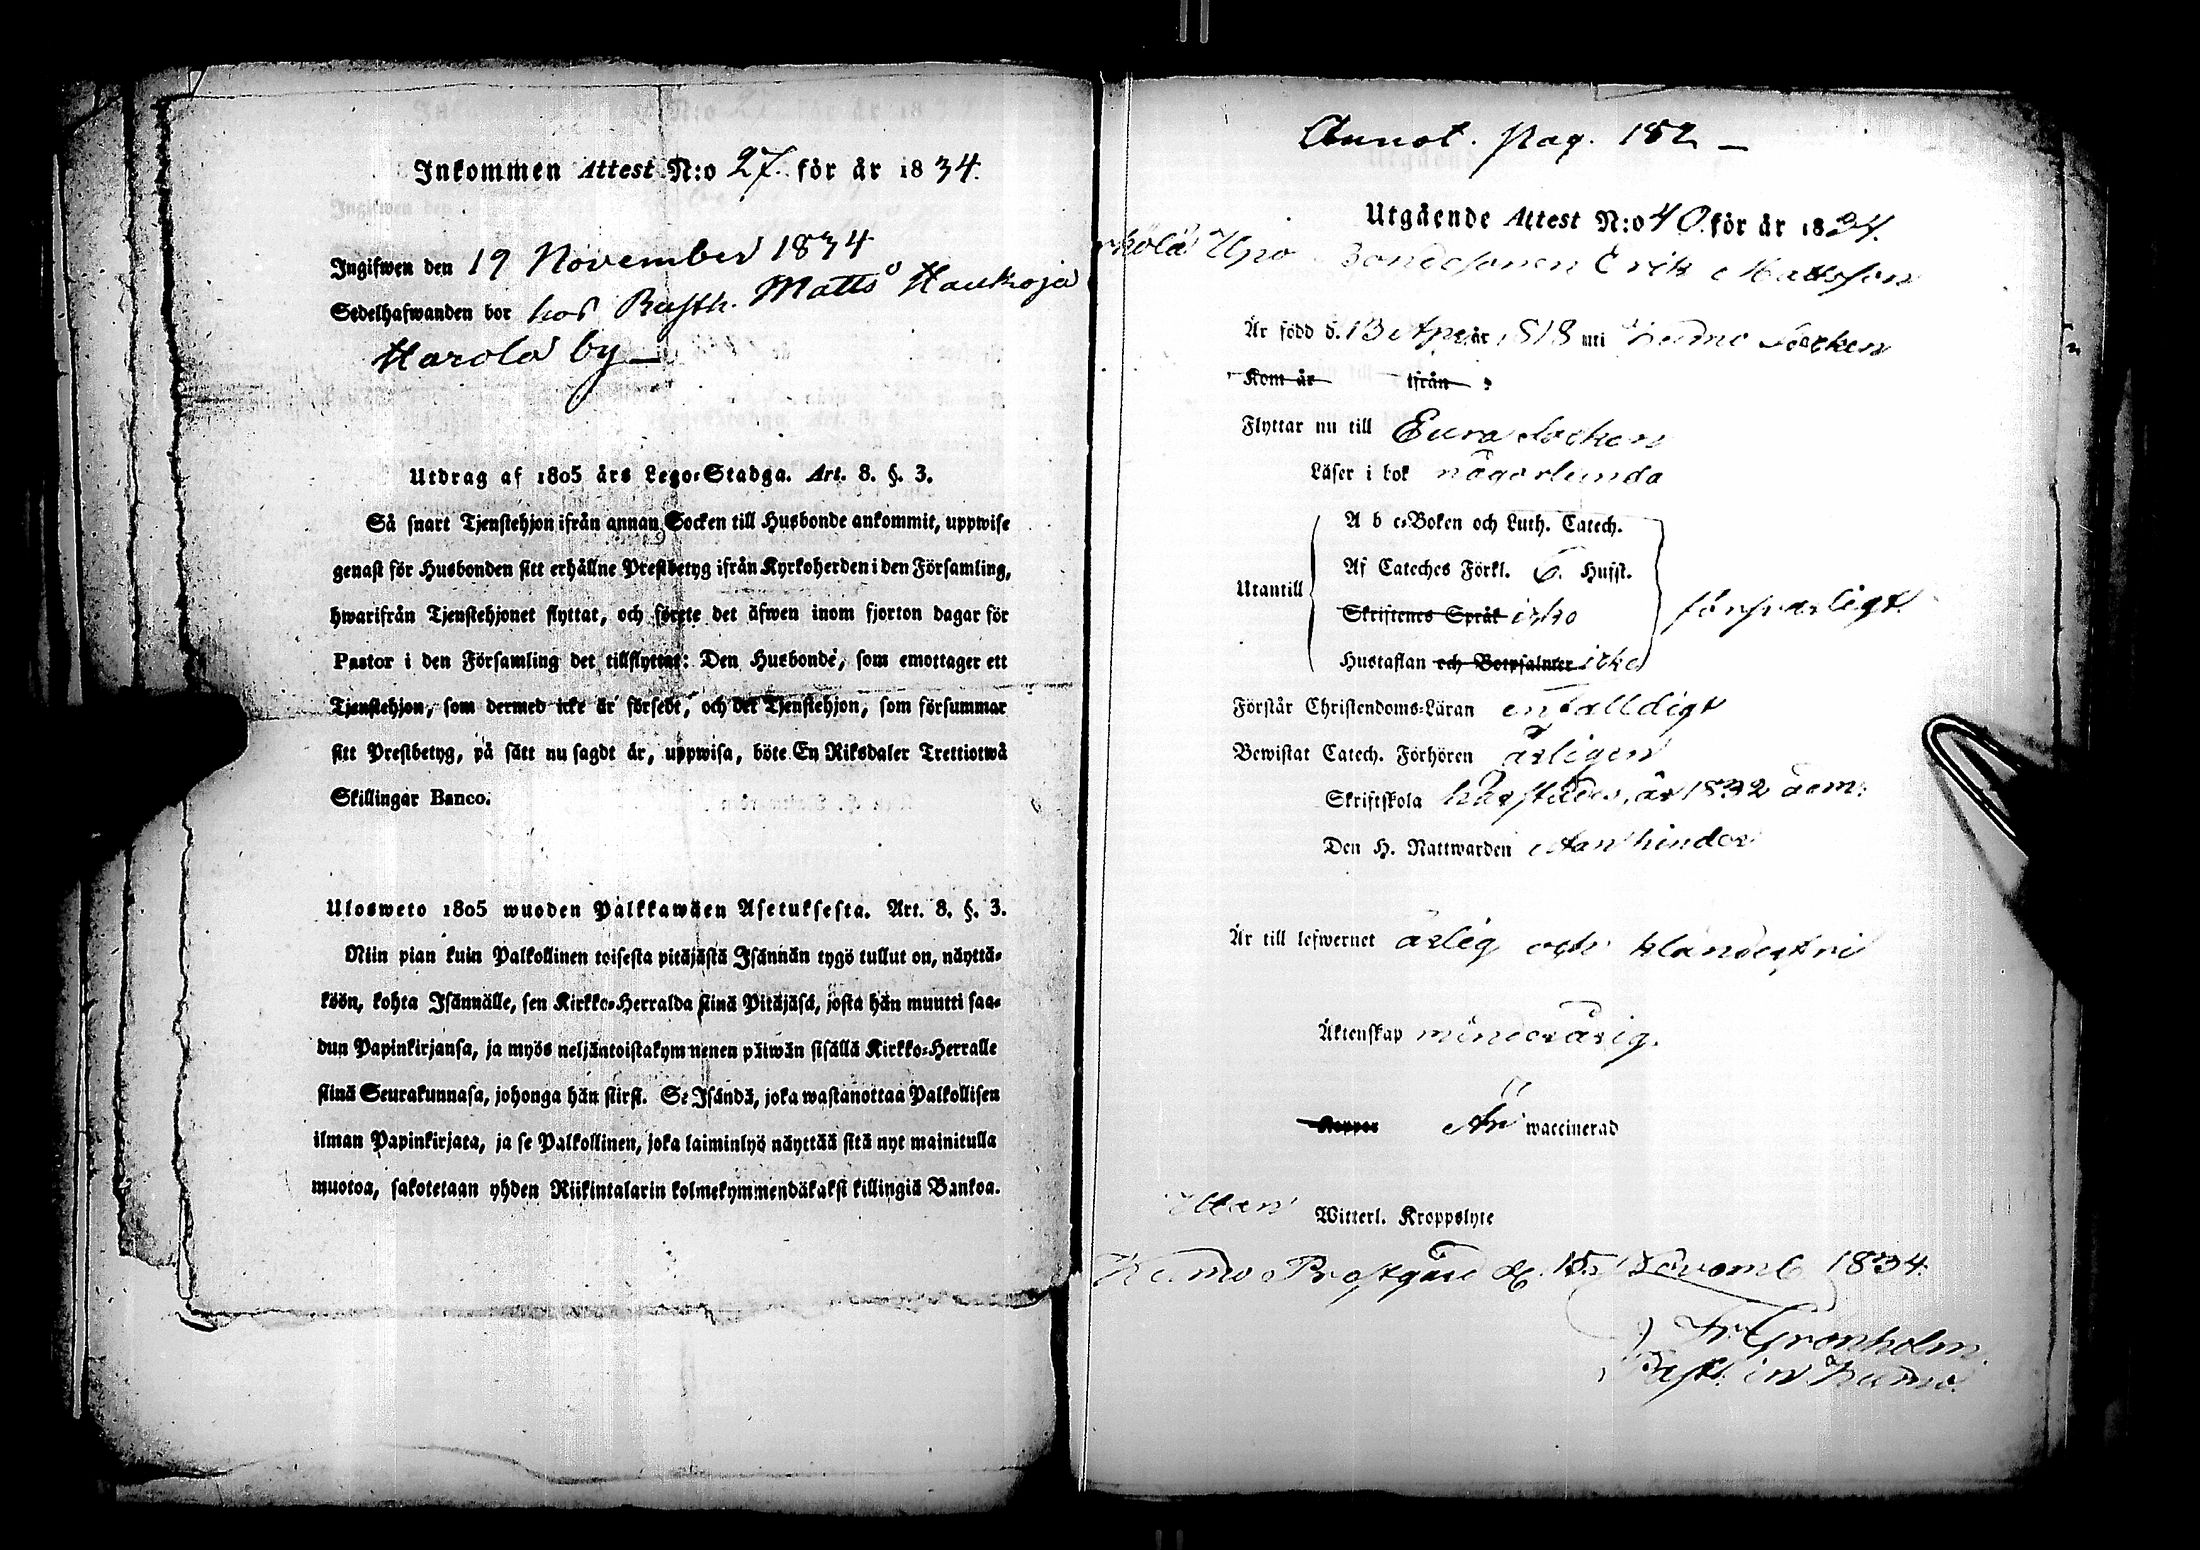 Inkommen Attest N:o 27. för år 1834.
Ingifwen den 19 November 1834
Sedelhafwanden bor hos Rusth. Matts Haukoja
Harola by
Utdrag af 1805 års Lego-Stadga. Art. 8. §. 3.
Så snart Tjenstehjon ifrån annan Socken till Husbonde ankommit, uppwise
genast för Husbonden sitt erhållne Prestbetyg ifrån Kyrkoherden i den Församling,
hwarifrån Tjenstehjonet flyttat, och förete det äfwen inom fjorton dagar för
Pastor i den Församling det tillflyttat: Den Husbonde, som emottager ett
Tjenstehjon, som dermed icke är försedt, och det Tjenstehjon, som försummar
sitt Prestbetyg, på sätt nu sagdt är, uppwisa, böte En Riksdaler Trettiotwå
Skillingar Banco.
Ulosweto 1805 wuoden Palkkawäen Asetuksesta. Art. 8. §. 3.
Niin pian kuin Palkollinen toisesta pitäjästä Isännän tygö tullut on, näyttä-
köön, kohta Isännälle, sen Kirkko-Herralda siinä Pitäjäsä, josta hän muutti saa-
dun Papinkirjansa, ja myös neljäntoistakymmenen päiwän sisällä Kirkko-Herralle
siinä Seurakunnasa, johonga hän siirsi. Se Isändä, joka wastanottaa Palkollisen
ilman Papinkirjata, ja se Palkollinen, joka laiminlyö näyttää sitä nyt mainitulla
muotoa, sakotetaan yhden Riikintalarin kolmekymmendäkaksi killingiä Bankoa.
Annot. Pag. 182
Utgående Attest N:o 40. för år 1834.
Bondesonen Erik Mattsson
Är född d. 13 Apr. år 1818 uti Kumo Socken
Kom år ifrån
Flyttar nu till Eura Socken
Läser i bok någorlunda
A b c-Boken och Luth. Catech.
Af Cateches Förkl. 6. Hufst.
Utantill
Skriftenes Språk icke
försvarligt
Hustaflan och Botpsalmer icke
Förstår Christendoms-Läran enfalldigt
Bewistat Catech. Förhören årligen
Skriftskola härstädes, år 1832 adm.
Den H. Nattwarden utan hinder
Är till lefwernet ärlig och klanderfri
Äktenskap minderårig.
Koppor Är waccinerad
Utan Witterl. Kroppslyte
Kumo Prestgård d. 15 Novemb. 1834.
Fr. Grönholm.
Past. in Kumo.